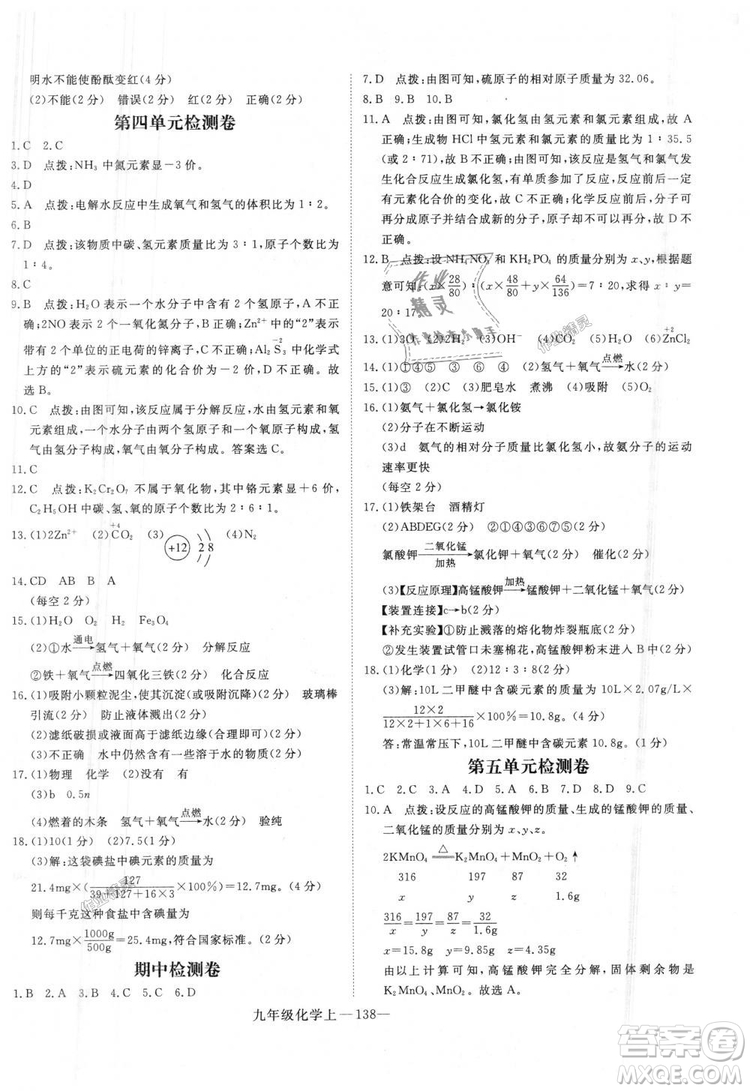 明水不能使酚酞变红(4 分)
(2)不能(2 分) 错误(2 分) 红(2 分) 正确(2 分)
第四单元检测卷
1. C 2. C
3. D 点拨：NH₃ 中氮元素显－3 价。
4. D
5. D 点拨：电解水反应中生成氧气和氢气的体积比为 1∶2。
6. B
7. D 点拨：该物质中碳、氢元素质量比为 3∶1，原子个数比为
1∶4。
8. C
9. B 点拨：H₂O 表示一个水分子中有 2 个氢原子，A 不正
确；2NO 表示两个一氧化氮分子。Zn²⁺ 中的“2”表示
带有 2 个单位的正电荷的锌离子，C 正确；Al₂S₃ 中化学式
上方的“2”表示硫元素的化合价为－2 价，D 正确。故
选 B。
10. C 点拨：由图可知，该反应属于分解反应，水由氢元素和氧
元素组成，一个水分子由两个氢原子和一个氧原子构成，氢
气由氢分子构成，氧气由氧分子构成。答案选 C。
11. C
12. C 点拨：K₂Cr₂O₇ 不属于氧化物，其中铬元素显＋6 价，
C₂H₅OH 中碳、氢、氧的原子个数比为 2∶6∶1。
13. (1)Zn²⁺ (2)CO₂ +4 (3) +12 2 8 (4)N₂
14. CD AB B A
(每空 2 分)
15. (1)H₂O O₂ H₂ Fe₃O₄
(2)①水 通电→ 氢气＋氧气(2 分) 分解反应
②铁＋氧气 点燃→ 四氧化三铁(2 分) 化合反应
16. (1)吸附小颗粒泥尘，使其沉淀(或吸附沉淀)(2 分) 玻璃棒
引流(2 分) 防止液体溅出(2 分)
(2)滤纸破损或液面高于滤纸边缘(合理即可)(2 分)
(3)不正确 水中仍然含有一些可溶于水的杂质(2 分)
17. (1)物理 化学 (2)③
(3)b 0.5n
(4)燃着的木条 氢气＋氧气 点燃→ 水(2 分) 验纯
18. (1)10(2 分) (2)7.5(2 分)
(3)解：这袋碘盐中碘元素的质量为
21.4mg×(127/(39＋127＋16×3)×100%)＝12.7mg(2 分)
则每千克这种食盐中的碘元素的质量为
12.7mg×1000g/500g＝25.4mg，符合国家标准。(2 分)
期中检测卷
1. B 2. A 3. B 4. B 5. C 6. D
7. D 点拨：由图可知，硫原子的相对原子质量为 32.06。
8. B 9. B 10. B
11. A 点拨：由图可知，氯化氢由氢元素和氯元素组成，故 A
正确；生成物 HCl 中氢元素和氯元素的质量比为 1∶35.5
(或 2∶71)，故 B 不正确；由图可知该反应是氢气和氯气发
生化合反应生成氯化氢，氢气和氯气是单质，反应中一定存
在元素化合价的变化，故 C 不正确；由图可知，该反应是分
子可再分成原子，原子可重新结合成新的分子，原子不可
再分，故 D 不正确。
12. B 点拨：设 NH₄NO₃ 和 KH₂PO₄ 的质量分别为 x、y，根据题
意可知(x×28/80)∶(x×48/80＋y×64/136)＝7∶20，求得 x∶y＝
20∶17。
13. (1)3O₂ (2)3OH⁻ (3)CO (4)H₂O₂ (5)ZnCl₂ +2
14. (1)①①④③⑤ (2)④ (3)② 氢气＋氧气 点燃→ 水
15. (1)① (2)③ (3)肥皂水 煮沸 (4)吸附 (5)H₂O
16. (1)氨气＋氯化氢→氯化铵
(2)分子在不断运动
(3)d 氨气的相对分子质量比氯化氢小，故氨分子的运动
速率更快
(每空 2 分)
17. (1)铁架台 酒精灯
(2)ABDEG(2 分) ②①④③⑥⑤(2 分)
氯酸钾 二氧化锰/加热→ 氯化钾＋氧气(2 分) 催化(2 分)
(3)【反应原理】高锰酸钾 加热→ 锰酸钾＋二氧化锰＋氧气(2 分)
【装置连接】c→b(2 分)
【补充实验】①防止溅落的熔化物炸裂瓶底(2 分)
②发生装置试管口未塞棉花，高锰酸钾粉末进入 b(2 分)
18. (1)化学(2 分) (2)12∶3∶8(2 分)
(3)解：10L 二甲醚中含碳元素的质量为 10L×2.07g/L×
12×2/(12×2＋1×6＋16)×100%＝10.8g(4 分)
答：常温常压下，10L 二甲醚中含碳元素 10.8g。(2 分)
第五单元检测卷
1. C 2. C 3. A 4. C 5. D 6. D 7. D 8. D 9. C
10. A 点拨：设反应的高锰酸钾的质量、生成的锰酸钾的质量、
二氧化锰的质量分别为 x、y、z。
2KMnO₄ △ K₂MnO₄＋MnO₂＋O₂↑
316 197 87 32
x y z 1.6g
316/x＝197/y＝87/z＝32/1.6g
x＝15.8g y＝9.85g z＝4.35g
由以上计算可知，高锰酸钾完全分解，固体剩余物质为
14.2g，故选 A。
九年级化学上 —138—
作业精灵
答案圈
MXQE.COM